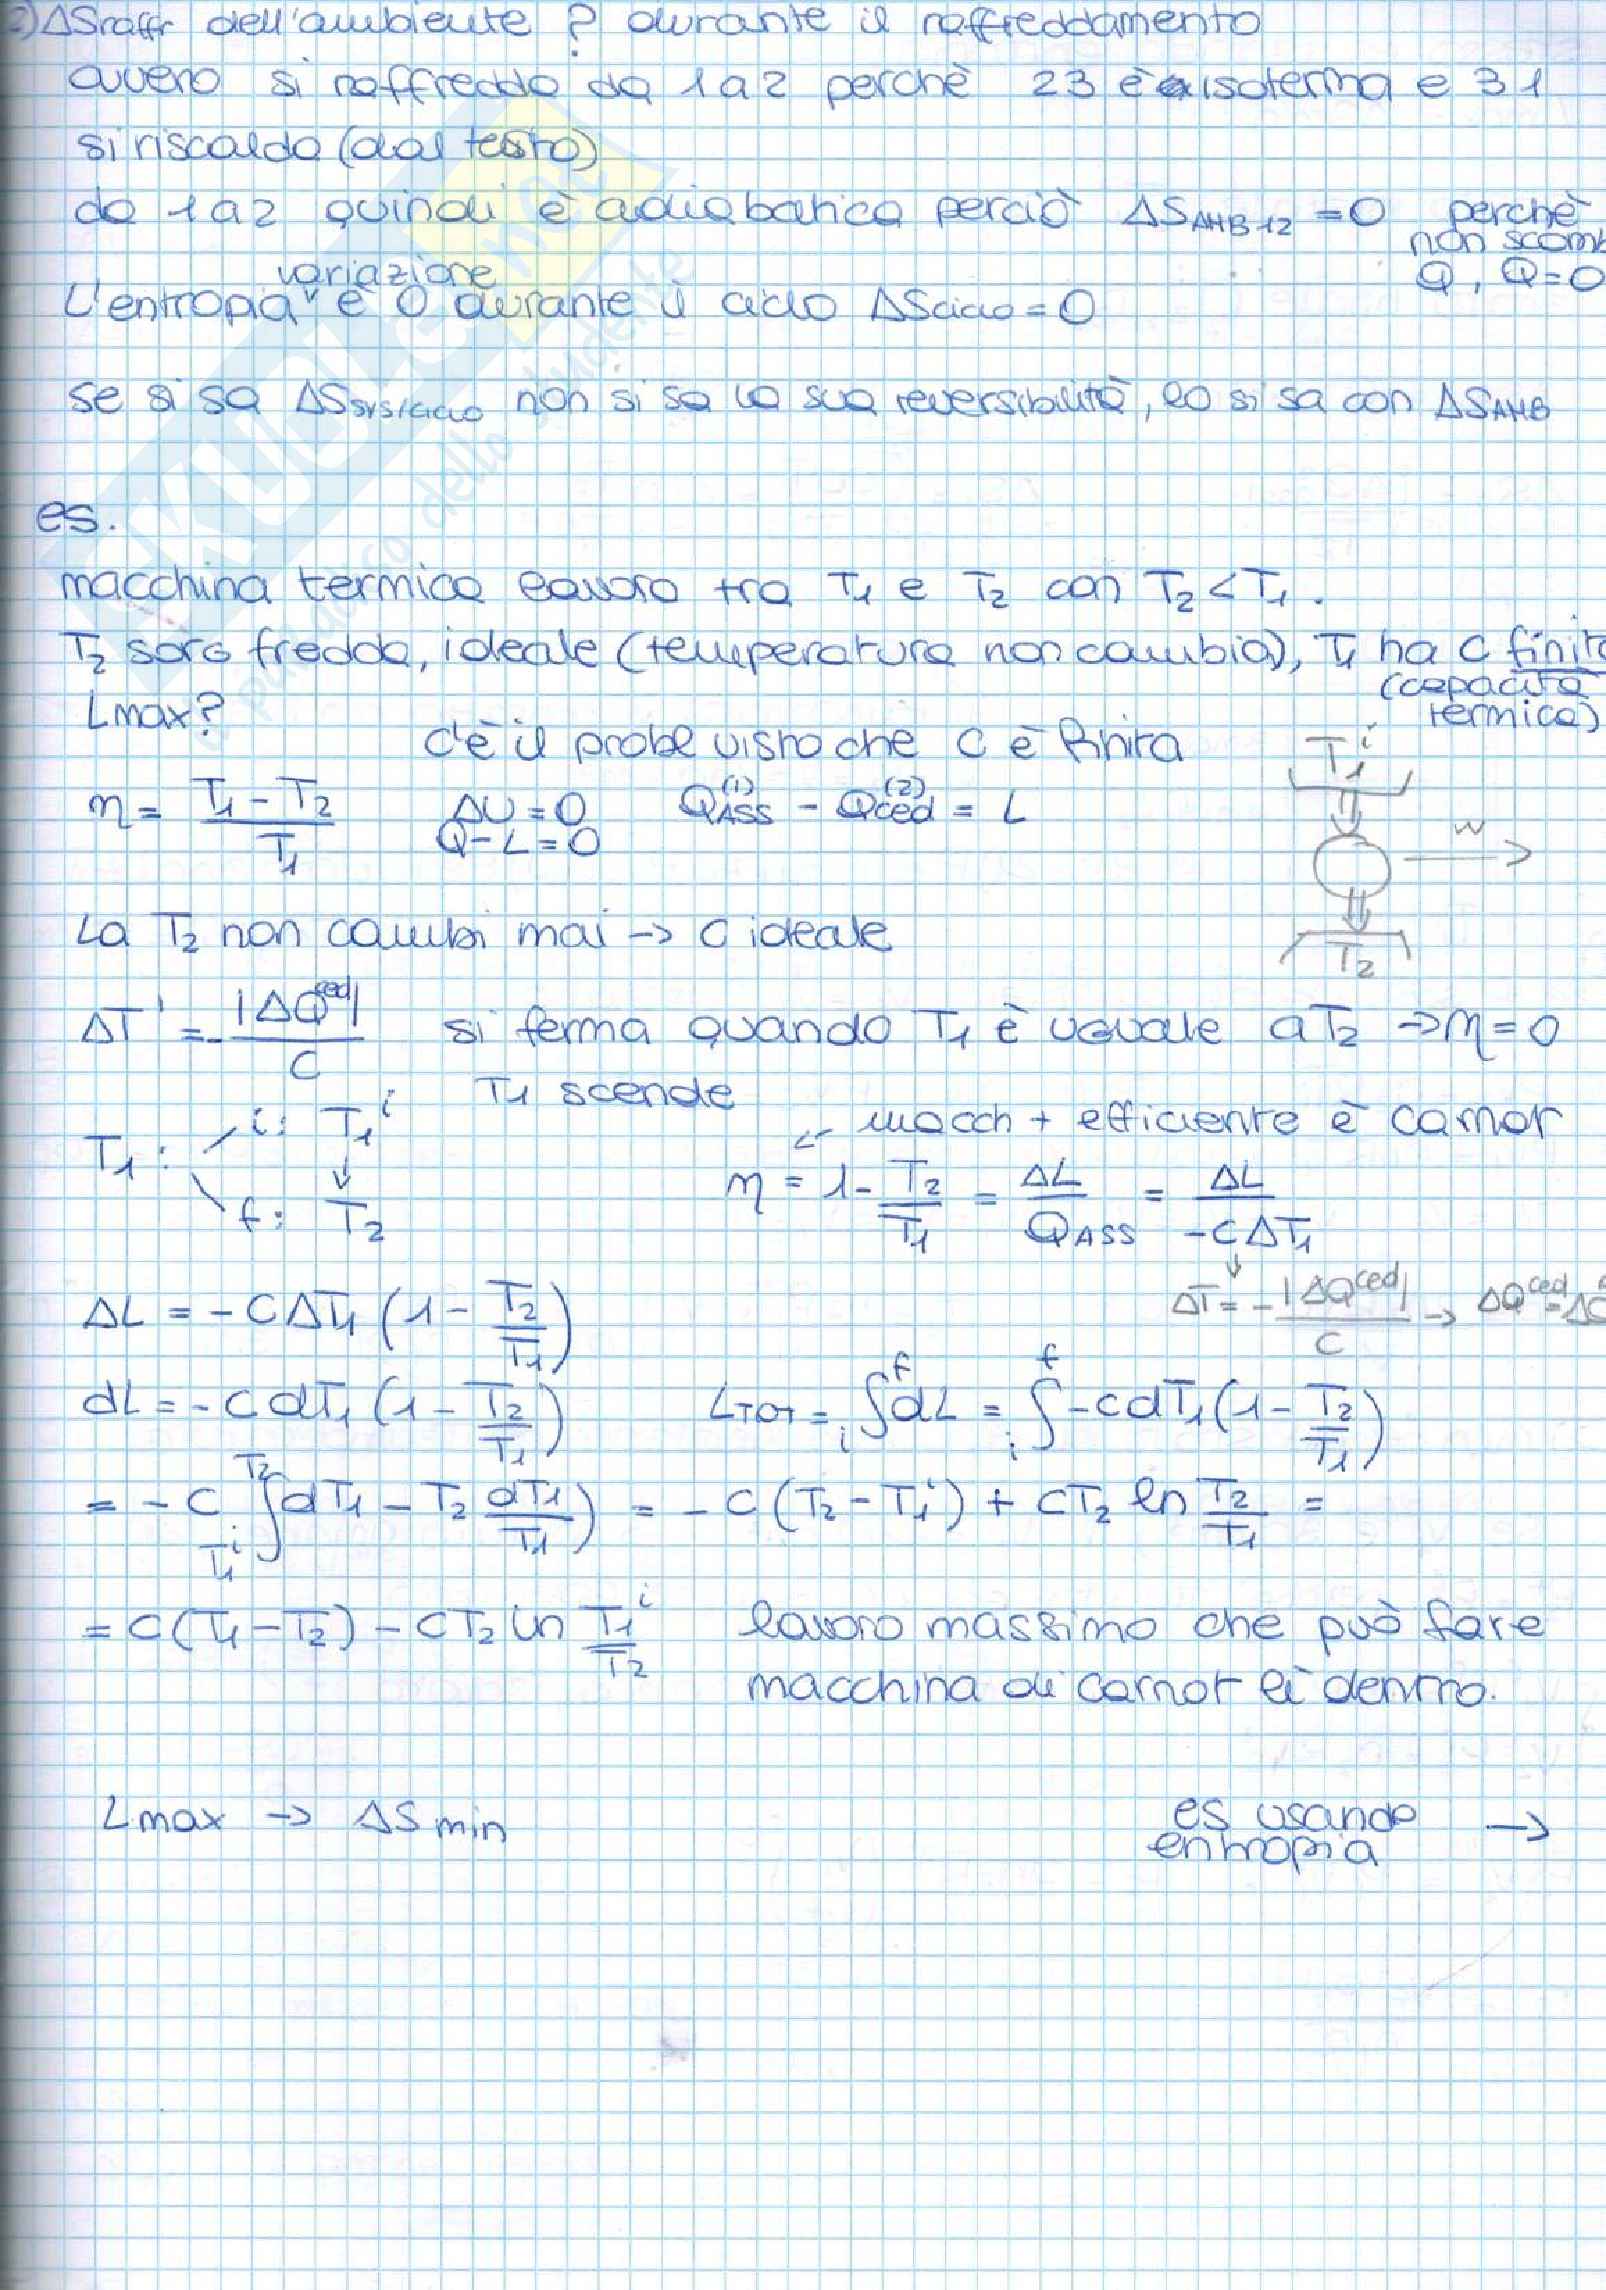 2) ΔSraffr dell'ambiente ? durante il raffreddamento
ovvero si raffredda da 1 a 2 perchè 23 è isoterma e 31
si riscalda (dal testo)
da 1 a 2 quindi è adiabatica perciò ΔSAMB12 = 0 perchè
non scamb
Q, Q=0
variazione
L'entropia è 0 durante il ciclo ΔSciclo = 0
se si sa ΔSsys/ciclo non si sa la sua reversibilità, lo si sa con ΔSAMB
es.
macchina termica lavora tra T1 e T2 con T2 < T1.
T2 sarà fredda, ideale (temperatura non cambia), T1 ha C finita
(capacità
termica)
Lmax?
c'è il probl visto che C è finita
T1^i
η = (T1 - T2)/T1 ΔU = 0 QASS^(1) - Qced^(2) = L
Q - L = 0
W
T2
La T2 non cambi mai → C ideale
ΔT' = -|ΔQ^ced|/C si ferma quando T1 è uguale a T2 → η = 0
T1 scende
T1: i: T1^i ↓ f: T2
macch + efficiente è carnot
η = 1 - T2/T1 = ΔL/QASS = ΔL/(-CΔT1)
ΔL = -CΔT1 (1 - T2/T1)
ΔT = -|ΔQ^ced|/C → ΔQ^ced
dL = -C dT1 (1 - T2/T1) LTOT = i∫f dL = i∫f -C dT1 (1 - T2/T1)
= -C T1^i∫T2 dT1 - T2 dT1/T1) = -C (T2 - T1^i) + CT2 ln T2/T1 =
= C(T1 - T2) - CT2 ln T1^i/T2 lavoro massimo che può fare
macchina di carnot lì dentro.
Lmax → ΔS min
es usando →
entropia
akudls.net